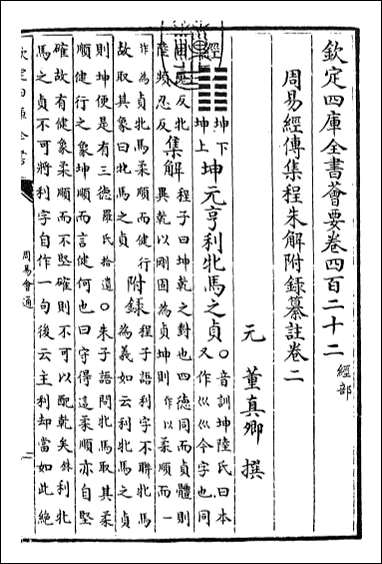 欽定四庫全書薈要卷四百二十二 經部
周易經傳集程朱解附録纂註卷二
元 董真卿 撰
經
䷁ 坤下
坤上
坤元亨利牝馬之貞
〇音訓坤陸氏曰本
又作巛巛今字也同
魂反牝
陸頻忍反
集解
程子曰坤乾之對也四德同而貞體則
異乾以剛固為貞坤則作以柔順而一
作為貞牝馬柔順而健行
故取其象曰牝馬之貞
附録
程子語利字不聨牝馬
為義如云利牝馬之貞
則坤便是有三德羅氏拾遺〇朱子語問牝馬取其柔
順健行之象坤順而言健何也曰守得這柔順亦自堅
確故有健象柔順而不堅確則不可以配乾矣銖利牝
馬之貞不可將利字自作一句後云主利却當如此絶
欽定四庫全書
周易會通